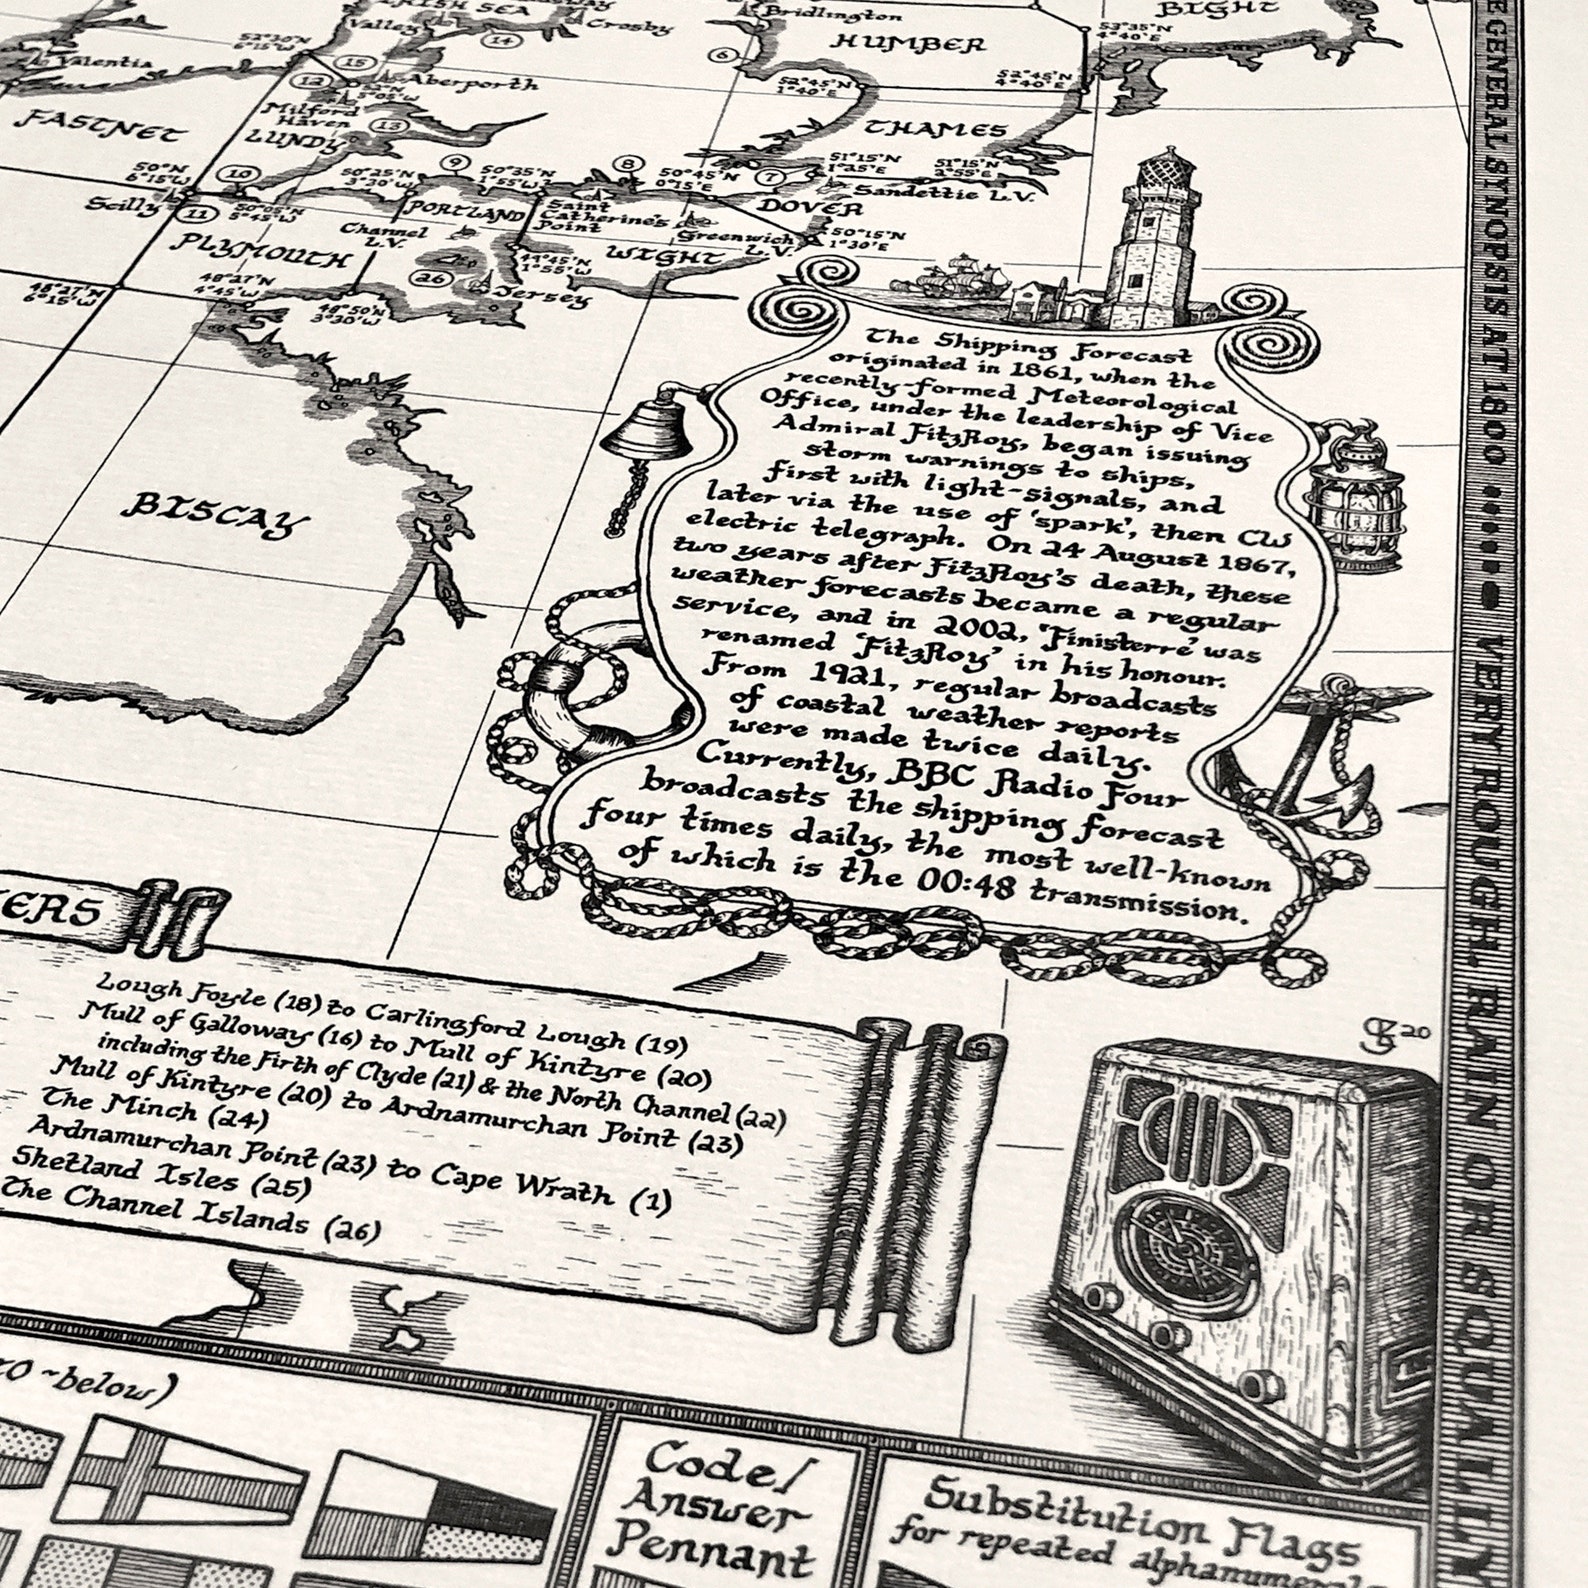 IRISH SEA
Crosby
Valley
14
Bridlington
HUMBER
BIGHT
53°35'N
4°40'E
6
52°30'N
6°15'W
Valentia
15
12
Aberporth
52°N
5°05'W
Milford
Haven
13
LUNDY
FASTNET
52°45'N
1°40'E
52°45'N
4°40'E
THAMES
50°N
6°15'W
10
Scilly
11
50°05'N
5°45'W
50°25'N
3°20'W
9
50°35'N
1°55'W
8
50°45'N
0°15'E
7
51°15'N
1°25'E
51°15'N
2°55'E
Sandettie L.V.
DOVER
PORTLAND
Saint
Catherine's
Point
Greenwich
L.V.
50°15'N
1°30'E
PLYMOUTH
Channel
L.V.
WIGHT
49°45'N
1°55'W
26
Jersey
48°27'N
6°15'W
48°27'N
4°45'W
48°50'N
3°30'W
BISCAY
The Shipping Forecast
originated in 1861, when the
recently-formed Meteorological
Office, under the leadership of Vice
Admiral FitzRoy, began issuing
storm warnings to ships,
first with light-signals, and
later via the use of 'spark', then CW
electric telegraph. On 24 August 1867,
two years after FitzRoy's death, these
weather forecasts became a regular
service, and in 2002, 'Finisterre' was
renamed 'FitzRoy' in his honour.
From 1921, regular broadcasts
of coastal weather reports
were made twice daily.
Currently, BBC Radio Four
broadcasts the shipping forecast
four times daily, the most well-known
of which is the 00:48 transmission.
ERS
Lough Foyle (18) to Carlingford Lough (19)
Mull of Galloway (16) to Mull of Kintyre (20)
including the Firth of Clyde (21) & the North Channel (22)
Mull of Kintyre (20) to Ardnamurchan Point (23)
The Minch (24)
Ardnamurchan Point (23) to Cape Wrath (1)
Shetland Isles (25)
The Channel Islands (26)
20
~below)
Code/
Answer
Pennant
Substitution Flags
for repeated
GENERAL SYNOPSIS AT 1800 VERY ROUGH. RAIN OR SQUALLY